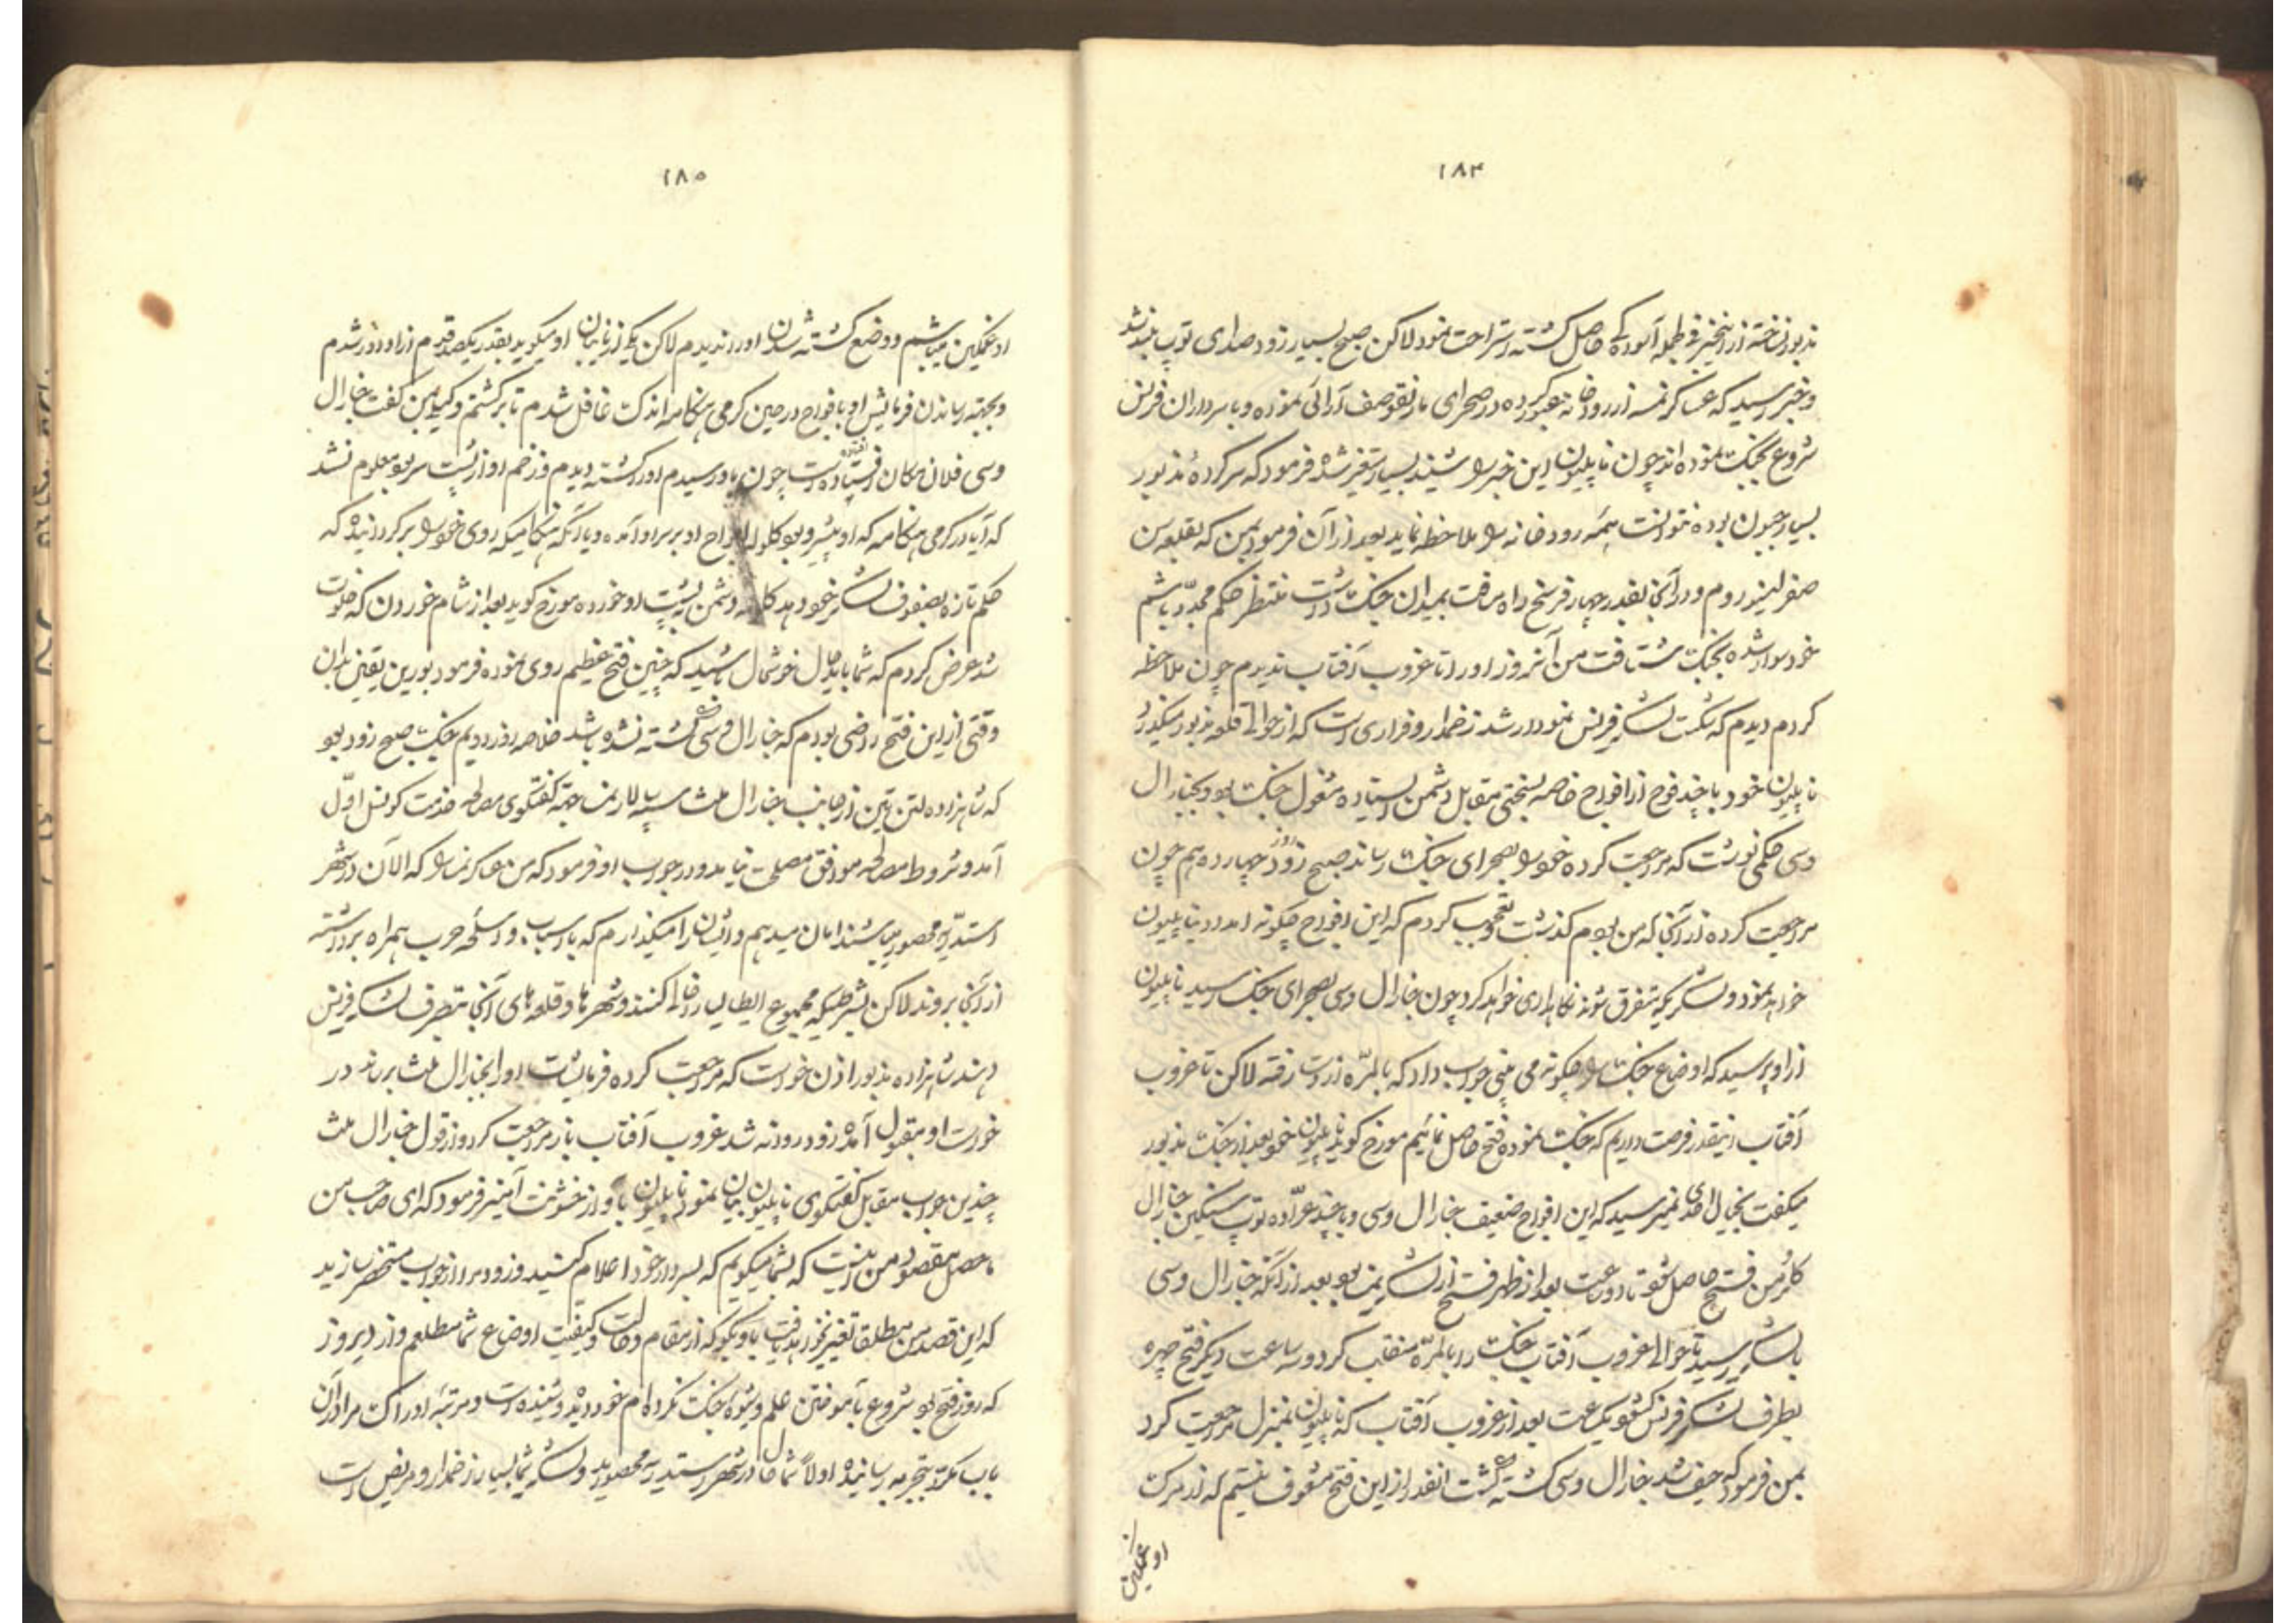 ۱۸۴
وخبر رسید که عساکر نمسه از رودخانه عبور کرده در صحرای مارنقو صف آرائی نموده و با سرداران فرنس
شروع بجنگ نموده اند چون ناپلیون این خبر را شنید بسیار متغیر شده فرمود که سرکردهٔ مذبور
بسیار جبون بوده نتوانست همه رودخانه را ملاحظه نماید بعد از آن فرمود بمن که بقلعه سن
روم و در آنجا بقدر چهار فرسخ راه مسافت بمیدان جنگ داشت منتظر حکم مجدد باشم
خود سوار شده بجنگ شتافت من آنروز او را تا غروب آفتاب ندیدم چون ملاحظه
کردم دیدم که شکست لشکر فرنس نمودار شد زخمدار و فراری است که از حوالی قلعه مذبور میگذرد
ناپلیون خود با چند فوج از افواج خاصه بسختی مقابل دشمن ایستاده مشغول جنگ بود و بجنارال
وسی حکمی نوشت که مراجعت کرده خود را بصحرای جنگ رساند صبح زود روز چهاردهم چون
مراجعت کرده از آنجا که من بودم گذشت تعجب کردم که این افواج چگونه امداد ناپلیون
خواهد نمود و لشکریکه متفرق شوند نگاهداری خواهد کرد چون جنارال وسی بصحرای جنگ رسید ناپلیون
از او پرسید که اوضاع جنگ را چگونه می بینی جواب داد که بالمرّه از دست رفته لاکن تا غروب
آفتاب اینقدر فرصت داریم که جنگ نموده فتح حاصل نمائیم مورخ گوید ناپلیون خود بعد از جنگ مذبور
میگفت بخیال احدی نمیرسید که این افواج ضعیف جنارال وسی و با چند عرّاده توپ سنگین جنارال
کلرمن فتح حاصل شود تا دو ساعت بعد از ظهر فتح از لشکر نمسه بود بعد از آنکه جنارال وسی
بلشکر رسید تا حوالی غروب آفتاب جنگ را بالمرّه منقلب کرد و سه ساعت دیگر فتح چهره
بطرف لشکر فرنس گشود یکساعت بعد از غروب آفتاب که ناپلیون بمنزل مراجعت کرد
بمن فرمود که حیف شد جنارال وسی کشته گشت انقدر از این فتح مشعوف نیستم که از مرگ
او غمگین
۱۸۵
او غمگین میباشم و وضع کشته شدن او را ندیدم لاکن یکی از نایبان او میگوید بقدر یکصد قدم از او دور شدم
و بجهته رساندن فرمایش او بافواج در حین گرمی هنگامه اندک غافل شدم تا برگشتم و کسی بمن گفت جنارال
وسی فلان مکان افتاده است چون باو رسیدم او را کشته دیدم و زخم او از پشت سر بود معلوم نشد
که آیا در گرمی هنگامه که او پیشرو بود کلوله افواج او بر سر او آمده و یا آنکه هنگامیکه روی خود را برگردانیده که
حکم تازه بصفوف لشکر خود دهد کلوله دشمن به پشت او خورده مورخ گوید بعد از شام خوردن که خلوت
شد عرض کردم که شما باید حال خوشحال باشید که چنین فتح عظیم روی نموده فرمود بورین یقین بدان
وقتی از این فتح راضی بودم که جنارال وسی کشته نشده باشد خلاصه روز دویم جنگ صبح زود بود
که شاهزاده لتن تین از جانب جنارال ملث سپهسالار نمسه جهة گفتگوی مصالحه خدمت کونسل اوّل
آمد و شروط مصالحه موافق مصلحت نیامد و در جواب او فرمود که من عساکر نمسه را که الآن در شهر
استدریه محصور میباشند امان میدهم و ایشان را میگذارم که با اسباب و اسلحه حرب همراه برداشته
از آنجا بروند لاکن بشرطیکه مجموع ایطالیا را خالی کنند و شهرها و قلعه های آنجا بتصرف لشکر فرنس
دهند شاهزاده مذبور اذن خواست که مراجعت کرده فرمایشات او را بجنارال ملث برساند در
خواست او مقبول آمده زود روانه شد غروب آفتاب باز مراجعت کرد و از قول جنارال ملث
چندین جواب مقابل گفتگوی ناپلیون بیان نمود ناپلیون باواز خشونت آمیز فرمود که ای صاحب من
ماحصل مقصود من اینست که بشما میگویم که بسردار خود اعلام کنید و زود مرا از جواب مستحضر سازید
که این قصد من مطلقا تغییر نخواهد یافت باو بگو که از مقام و حالت و کیفیت اوضاع شما مطلعم و از دیروز
که روز فتح بود شروع بآموختن علم و شیوه جنگ نکرده ام خود دیده و شنیده است و مرتبه ادراک مرا در آن
باب مکرّر بتجربه رسانیده اولاً شما حال در شهر استدریه محصورید و لشکر شما بسیار زخمدار و مریض است